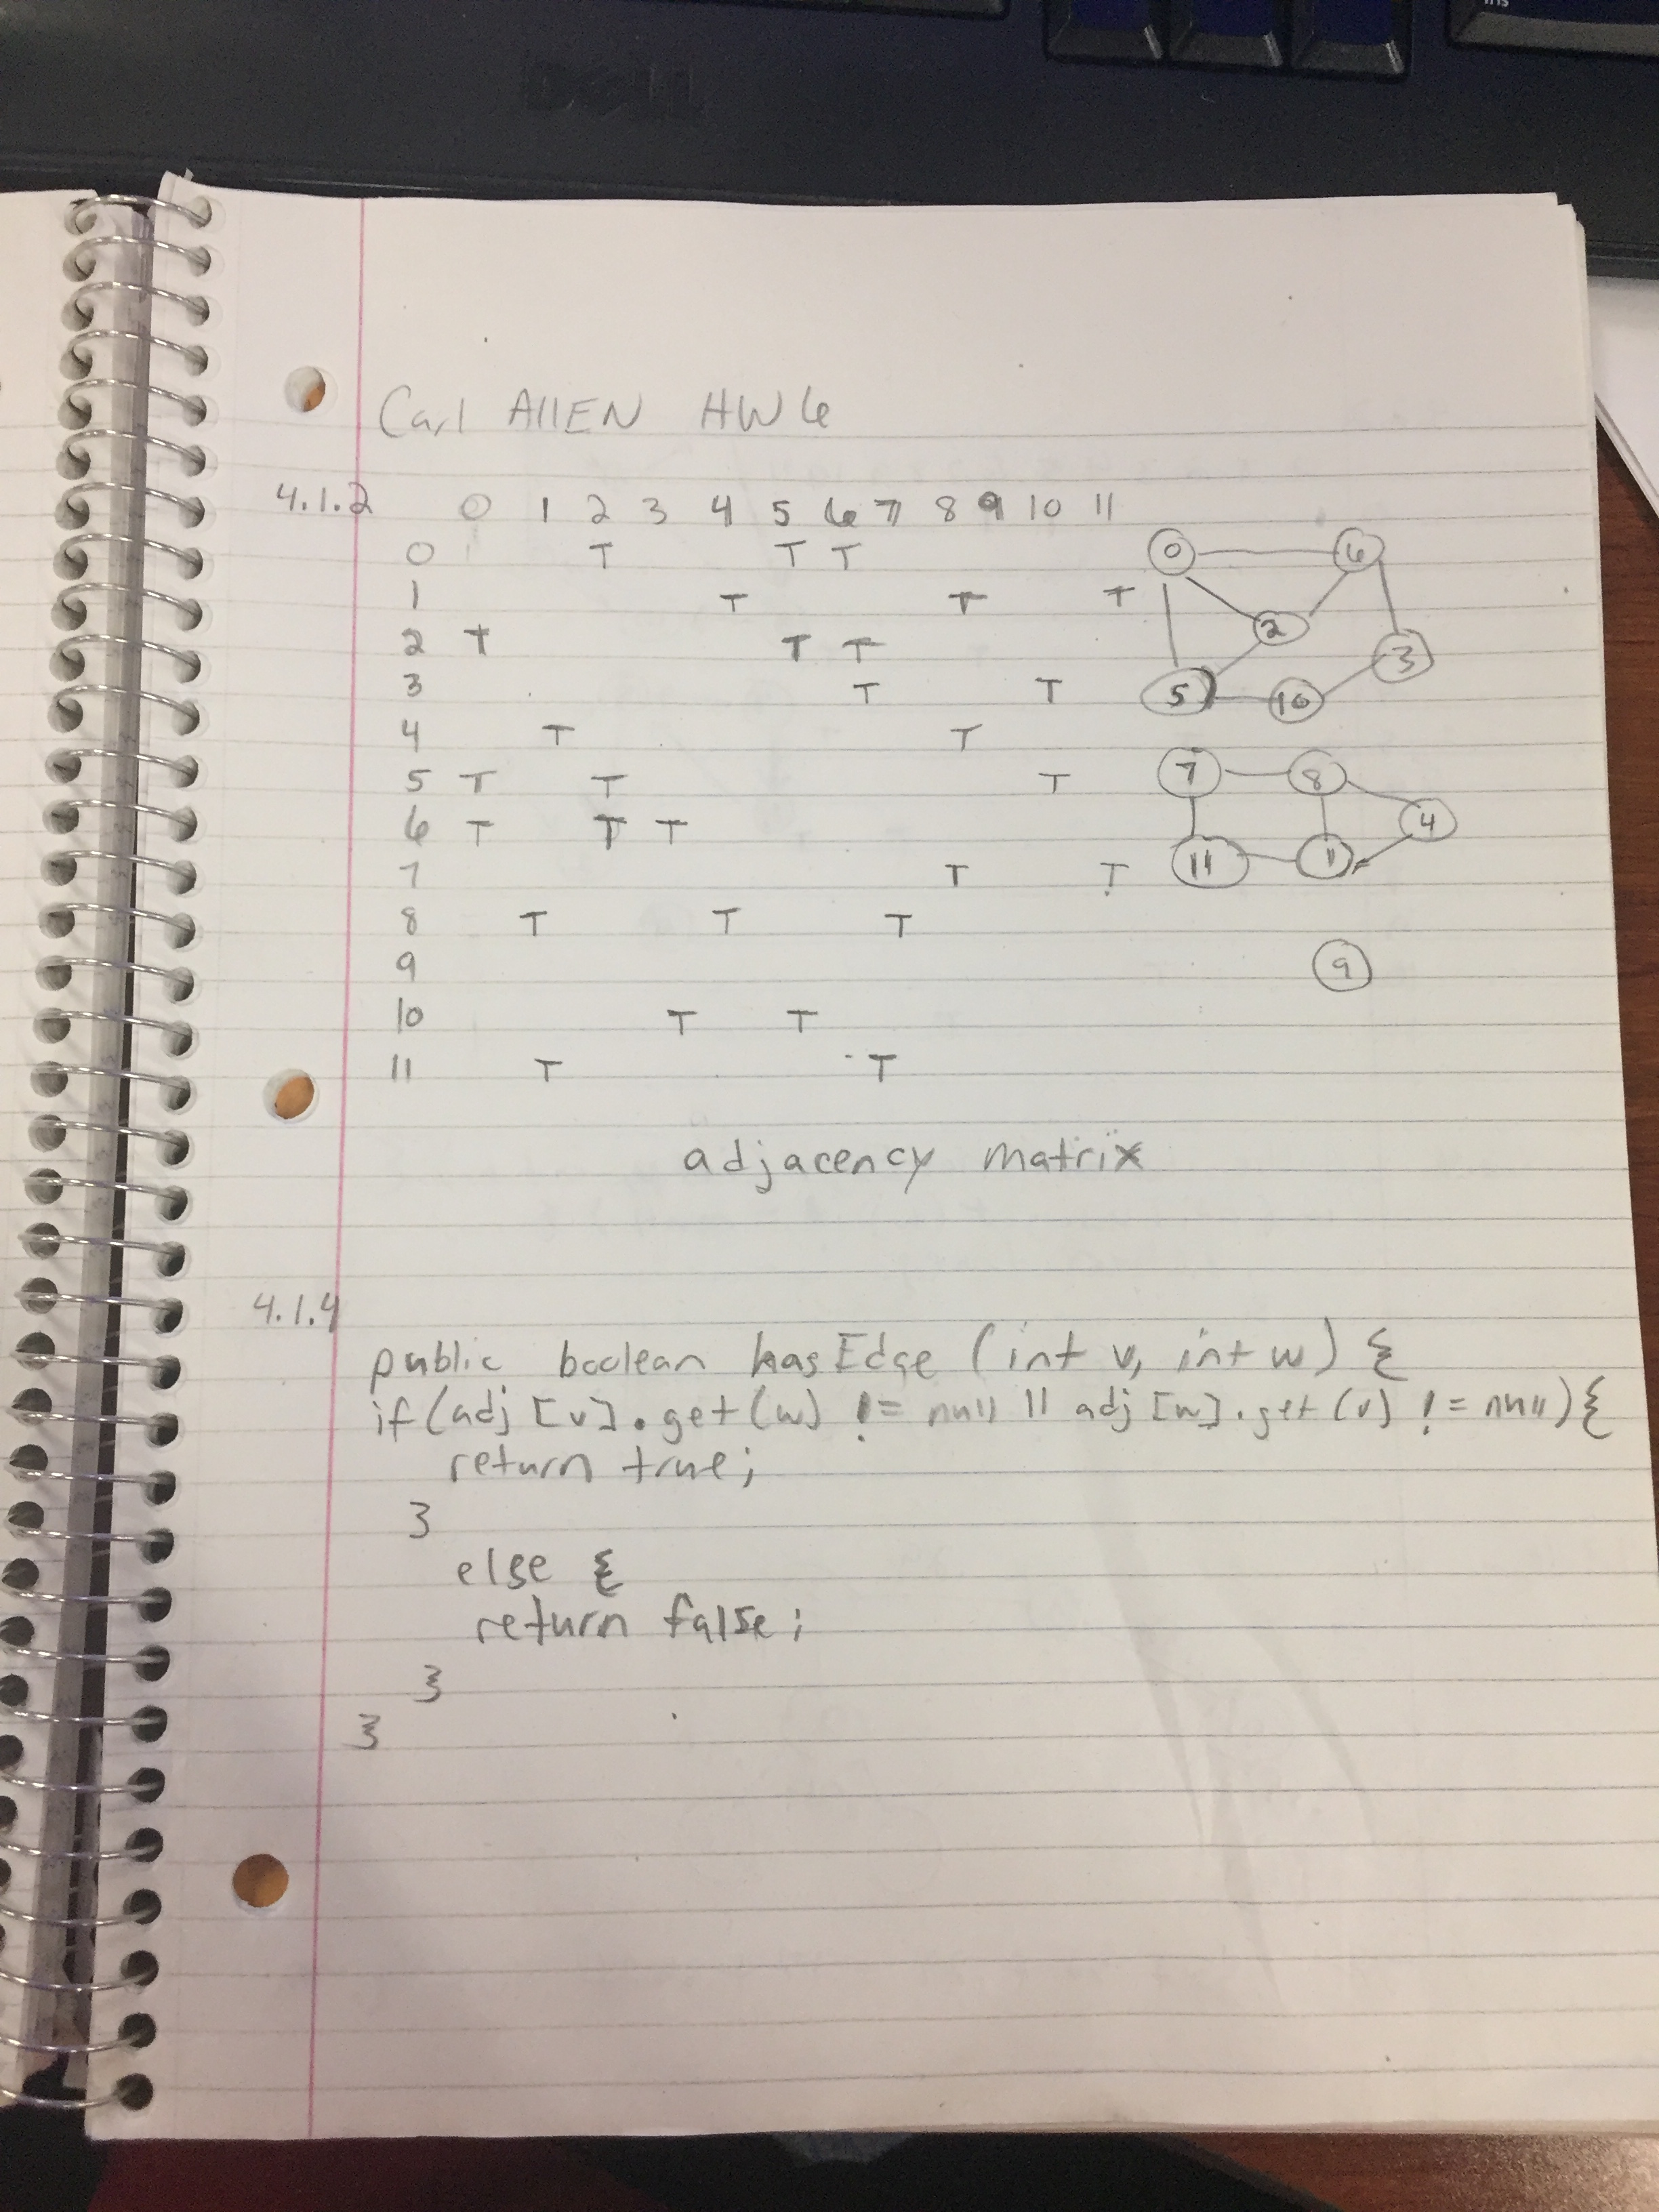 Ins
DELL
Carl AllEN HW 6
4.1.2 0 1 2 3 4 5 6 7 8 9 10 11
0 T T T
1 T T T
2 T T T
3 T T
4 T T
5 T T T
6 T T T
7 T T
8 T T T
9
10 T T
11 T T
0 6
2
3
5 10
7 8
4
11 1
9
adjacency matrix
4.1.4
public boolean hasEdge (int v, int w) {
if (adj [v].get(w) != null || adj [w].get(v) != null){
return true;
}
else {
return false;
}
}